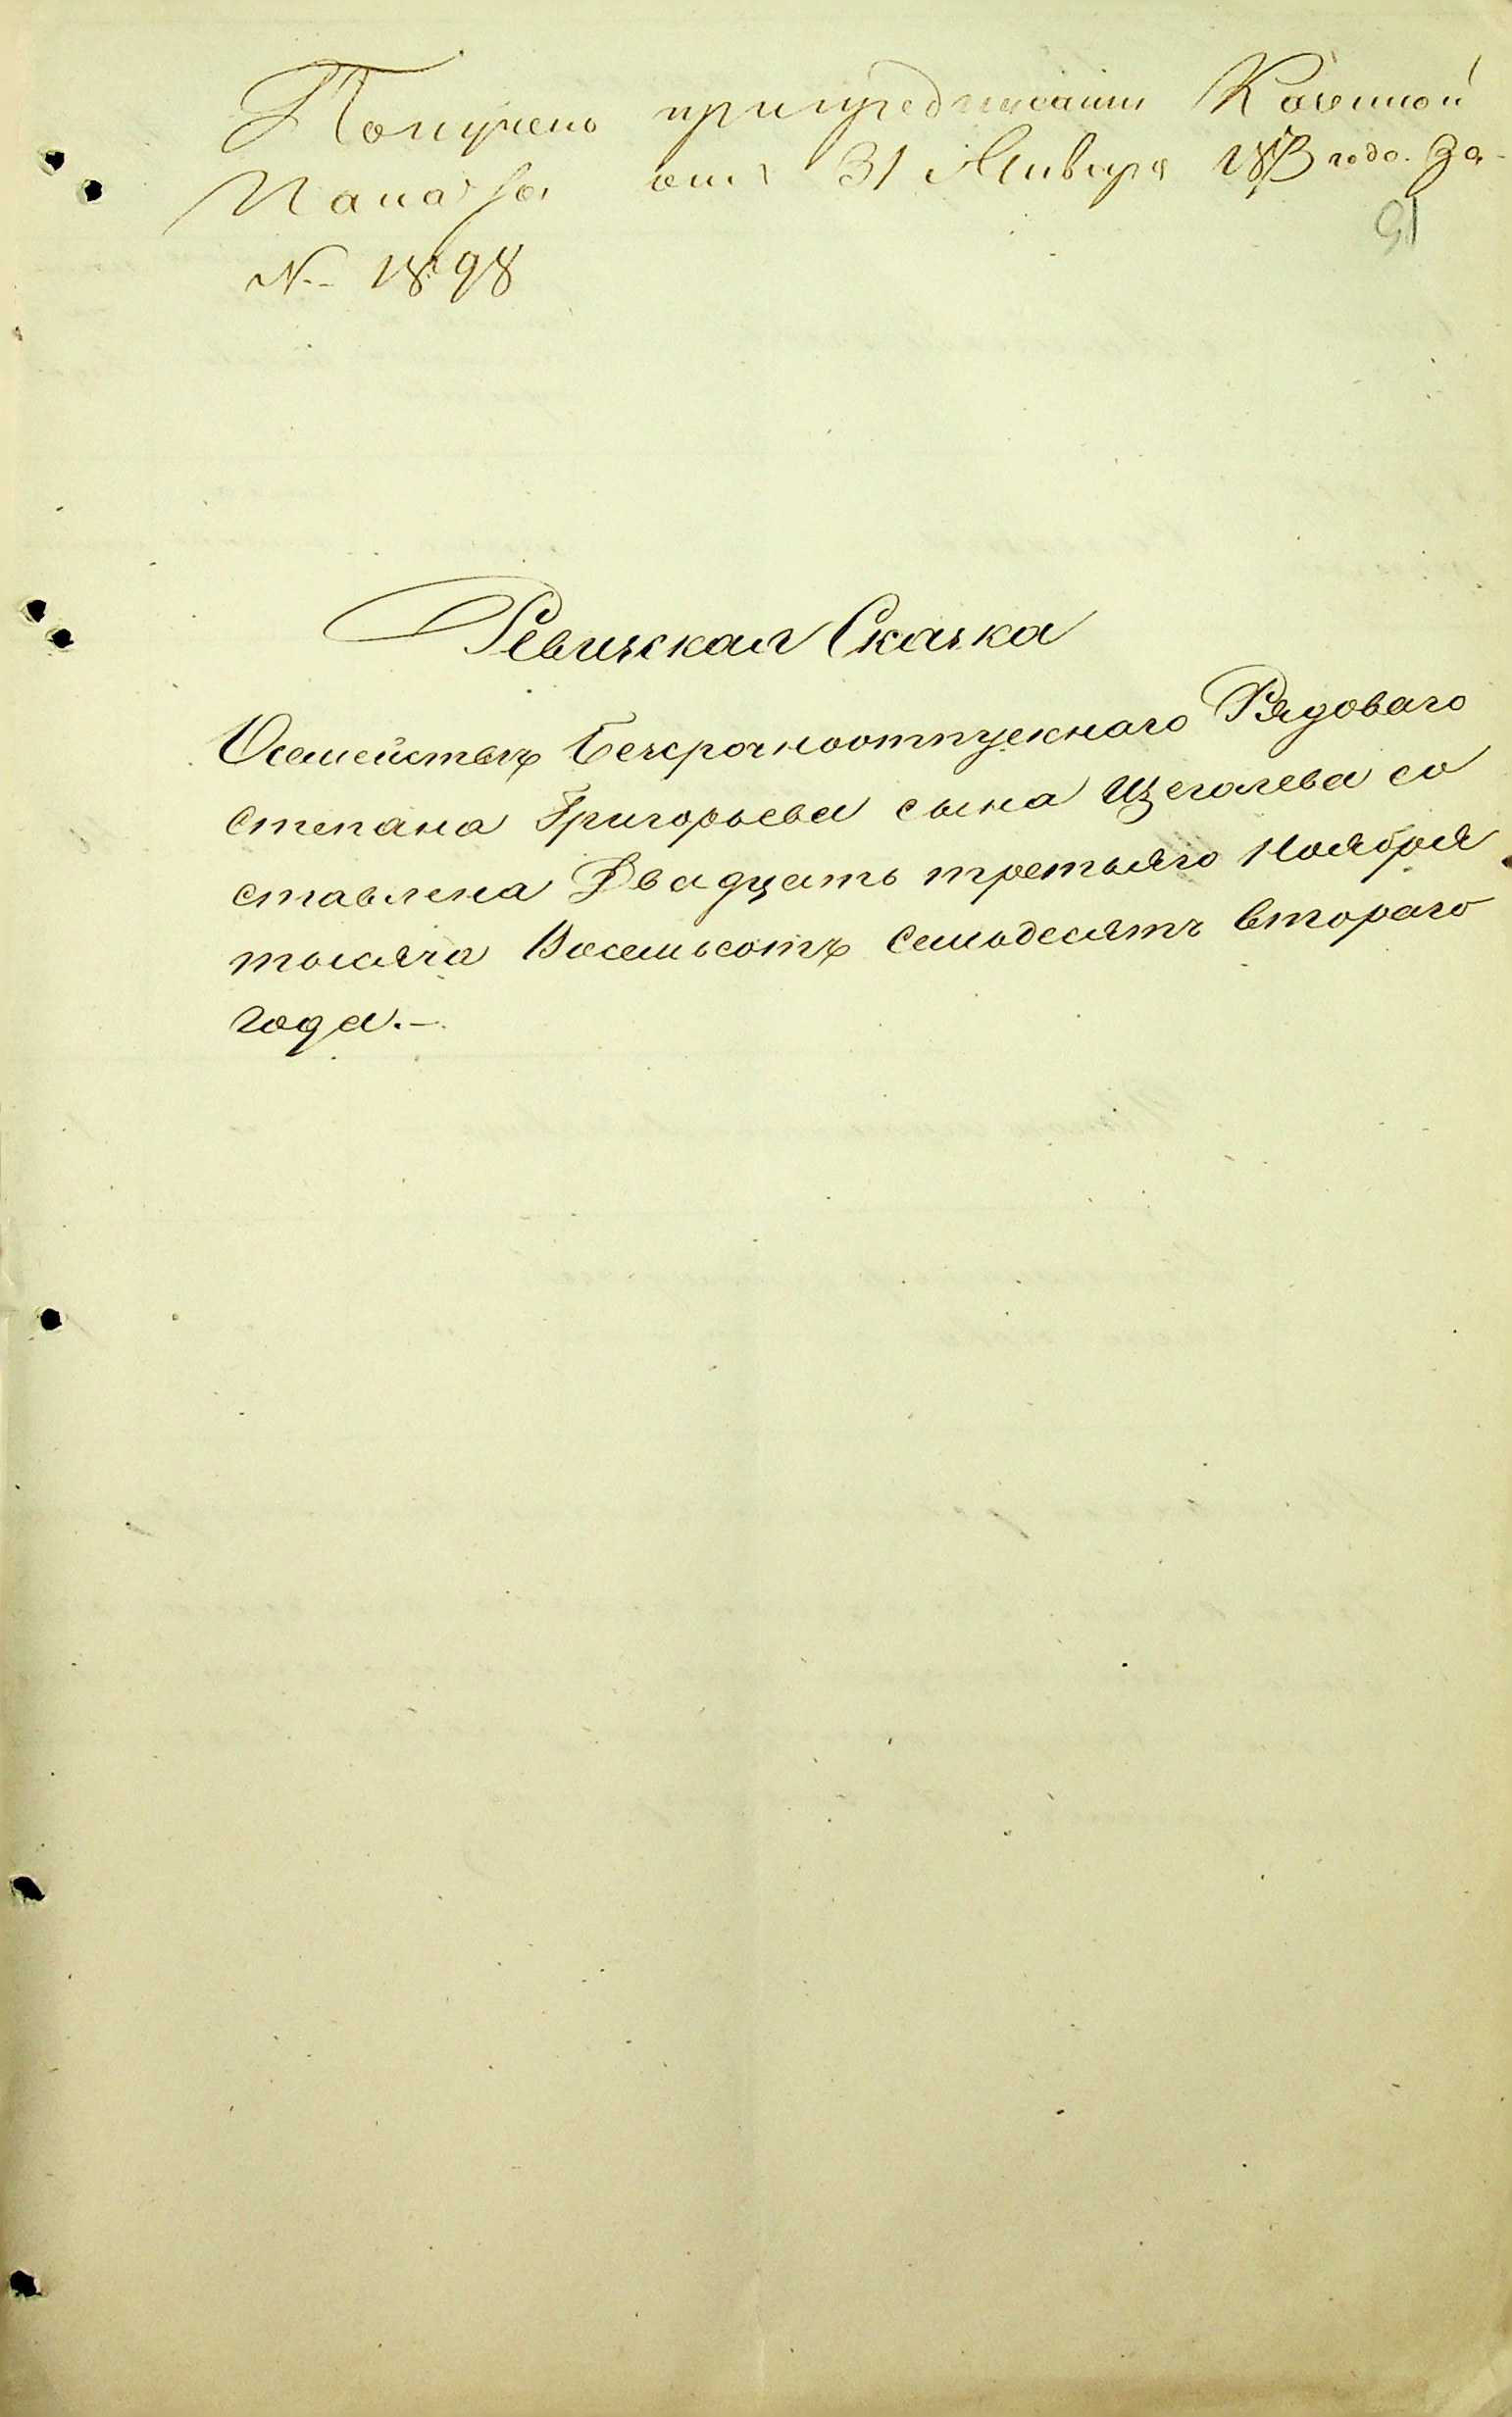 Получено при предписании Казенной
Палаты отъ 31 Января 1873 года. За
91
№ 1898
Ревизская Сказка
Осемействѣ безсрочноотпускнаго Рядоваго
Степана Григорьева сына Щеголева со
ставлена Двадцать третьяго Ноября
тысяча Восемьсотъ Семьдесятъ втораго
года.-